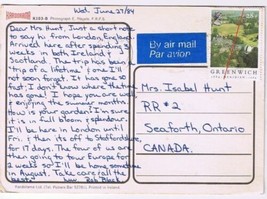 Wed. June 27/84
Dear Mrs Hunt, Just a short note
to say hi from London, England.
Arrived here after spending 3
weeks in Ireland &
Scotland. The trip has been a
"trip of a lifetime" (one I'll
not soon forget. It has gone
so fast; I don't know where the time
has gone! I hope you are well
& enjoying the summer months.
How is your garden? I'm sure
it is in full bloom & splendour.
I'll be here in London until
Fri; then it's off to Staffordshire
for 17 days. The four of us are
then going to tour Europe for
2 weeks so I'll be home sometime
in August. Take care, all the
best.
By air mail
Par avion
GREENWICH
Mrs. Isabel Hunt
RR #2
Seaforth, Ontario
CANADA.